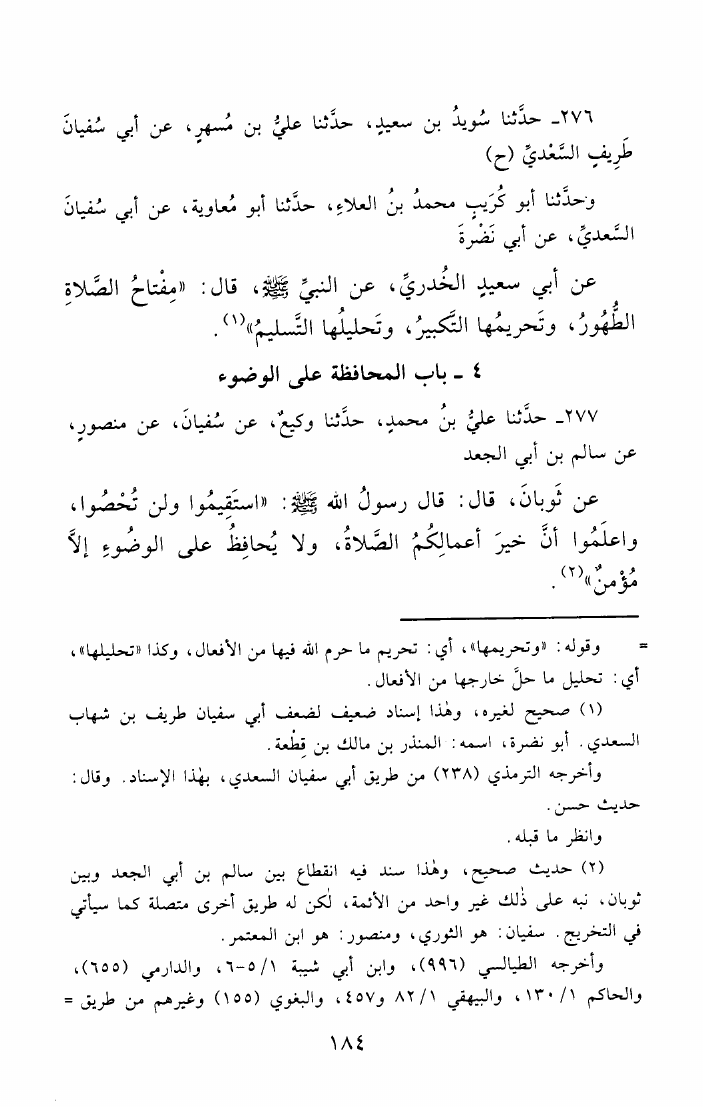 ٢٧٦- حدَّثنا سُويدُ بن سعيدٍ، حدَّثنا عليُّ بن مُسهرٍ، عن أبي سُفيانَ
طَرِيفٍ السَّعْديِّ (ح)
وحدَّثنا أبو كُرَيبٍ محمدُ بنُ العلاءِ، حدَّثنا أبو مُعاوية، عن أبي سُفيانَ
السَّعديِّ، عن أبي نَضْرةَ
عن أبي سعيدٍ الخُدريِّ، عن النبيِّ ﷺ، قال: «مِفْتاحُ الصَّلاةِ
الطُّهُورُ، وتَحريمُها التَّكبيرُ، وتَحليلُها التَّسليمُ»(١).
٤ - باب المحافظة على الوضوء
٢٧٧- حدَّثنا عليُّ بنُ محمدٍ، حدَّثنا وكيعٌ، عن سُفيانَ، عن منصورٍ،
عن سالم بن أبي الجعد
عن ثَوبانَ، قال: قال رسولُ الله ﷺ: «استَقِيمُوا ولن تُحْصُوا،
واعلَمُوا أنَّ خيرَ أعمالِكُمُ الصَّلاةُ، ولا يُحافِظُ على الوضُوءِ إلاَّ
مُؤْمنٌ»(٢).
= وقوله: «وتحريمها»، أي: تحريم ما حرم الله فيها من الأفعال، وكذا «تحليلها»،
أي: تحليل ما حلَّ خارجها من الأفعال.
(١) صحيح لغيره، وهٰذا إسناد ضعيف لضعف أبي سفيان طريف بن شهاب
السعدي. أبو نضرة، اسمه: المنذر بن مالك بن قِطْعة.
وأخرجه الترمذي (٢٣٨) من طريق أبي سفيان السعدي، بهٰذا الإسناد. وقال:
حديث حسن.
وانظر ما قبله.
(٢) حديث صحيح، وهٰذا سند فيه انقطاع بين سالم بن أبي الجعد وبين
ثوبان، نبه على ذٰلك غير واحد من الأئمة، لٰكن له طريق أخرى متصلة كما سيأتي
في التخريج. سفيان: هو الثوري، ومنصور: هو ابن المعتمر.
وأخرجه الطيالسي (٩٩٦)، وابن أبي شيبة ١/٥-٦، والدارمي (٦٥٥)،
والحاكم ١/١٣٠، والبيهقي ١/٨٢ و٤٥٧، والبغوي (١٥٥) وغيرهم من طريق =
١٨٤